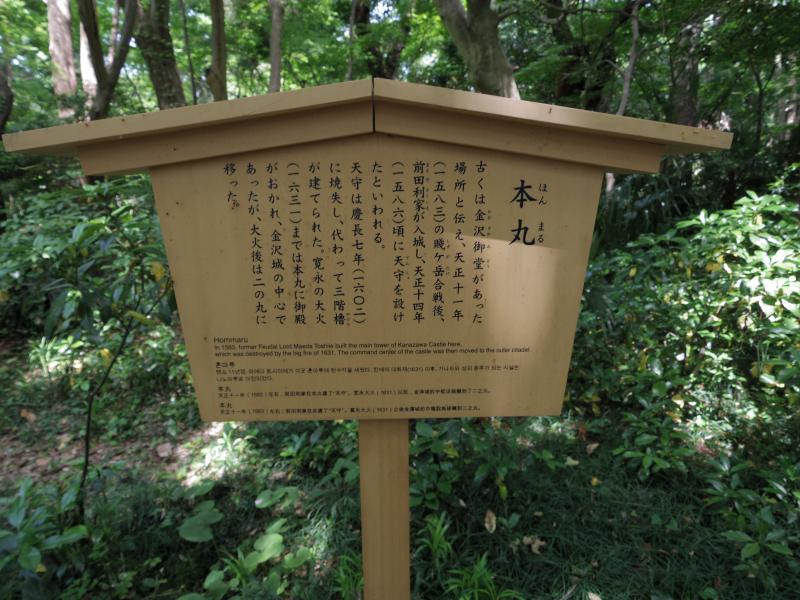 本丸
ほん まる
古くは金沢御堂があった
場所と伝え、天正十一年
(一五八三)の賤ケ岳合戦後、
前田利家が入城し、天正十四年
(一五八六)頃に天守を設け
たといわれる。
天守は慶長七年(一六〇二)
に焼失し、代わって三階櫓
が建てられた。寛永の大火
(一六三一)までは本丸に御殿
がおかれ、金沢城の中心で
あったが、大火後は二の丸に
移った。
Hommaru
In 1583, former Feudal Lord Maeda Toshiie built the main tower of Kanazawa Castle here,
which was destroyed by the big fire of 1631. The command center of the castle was then moved to the outer citadel.
혼마루
本丸
本丸